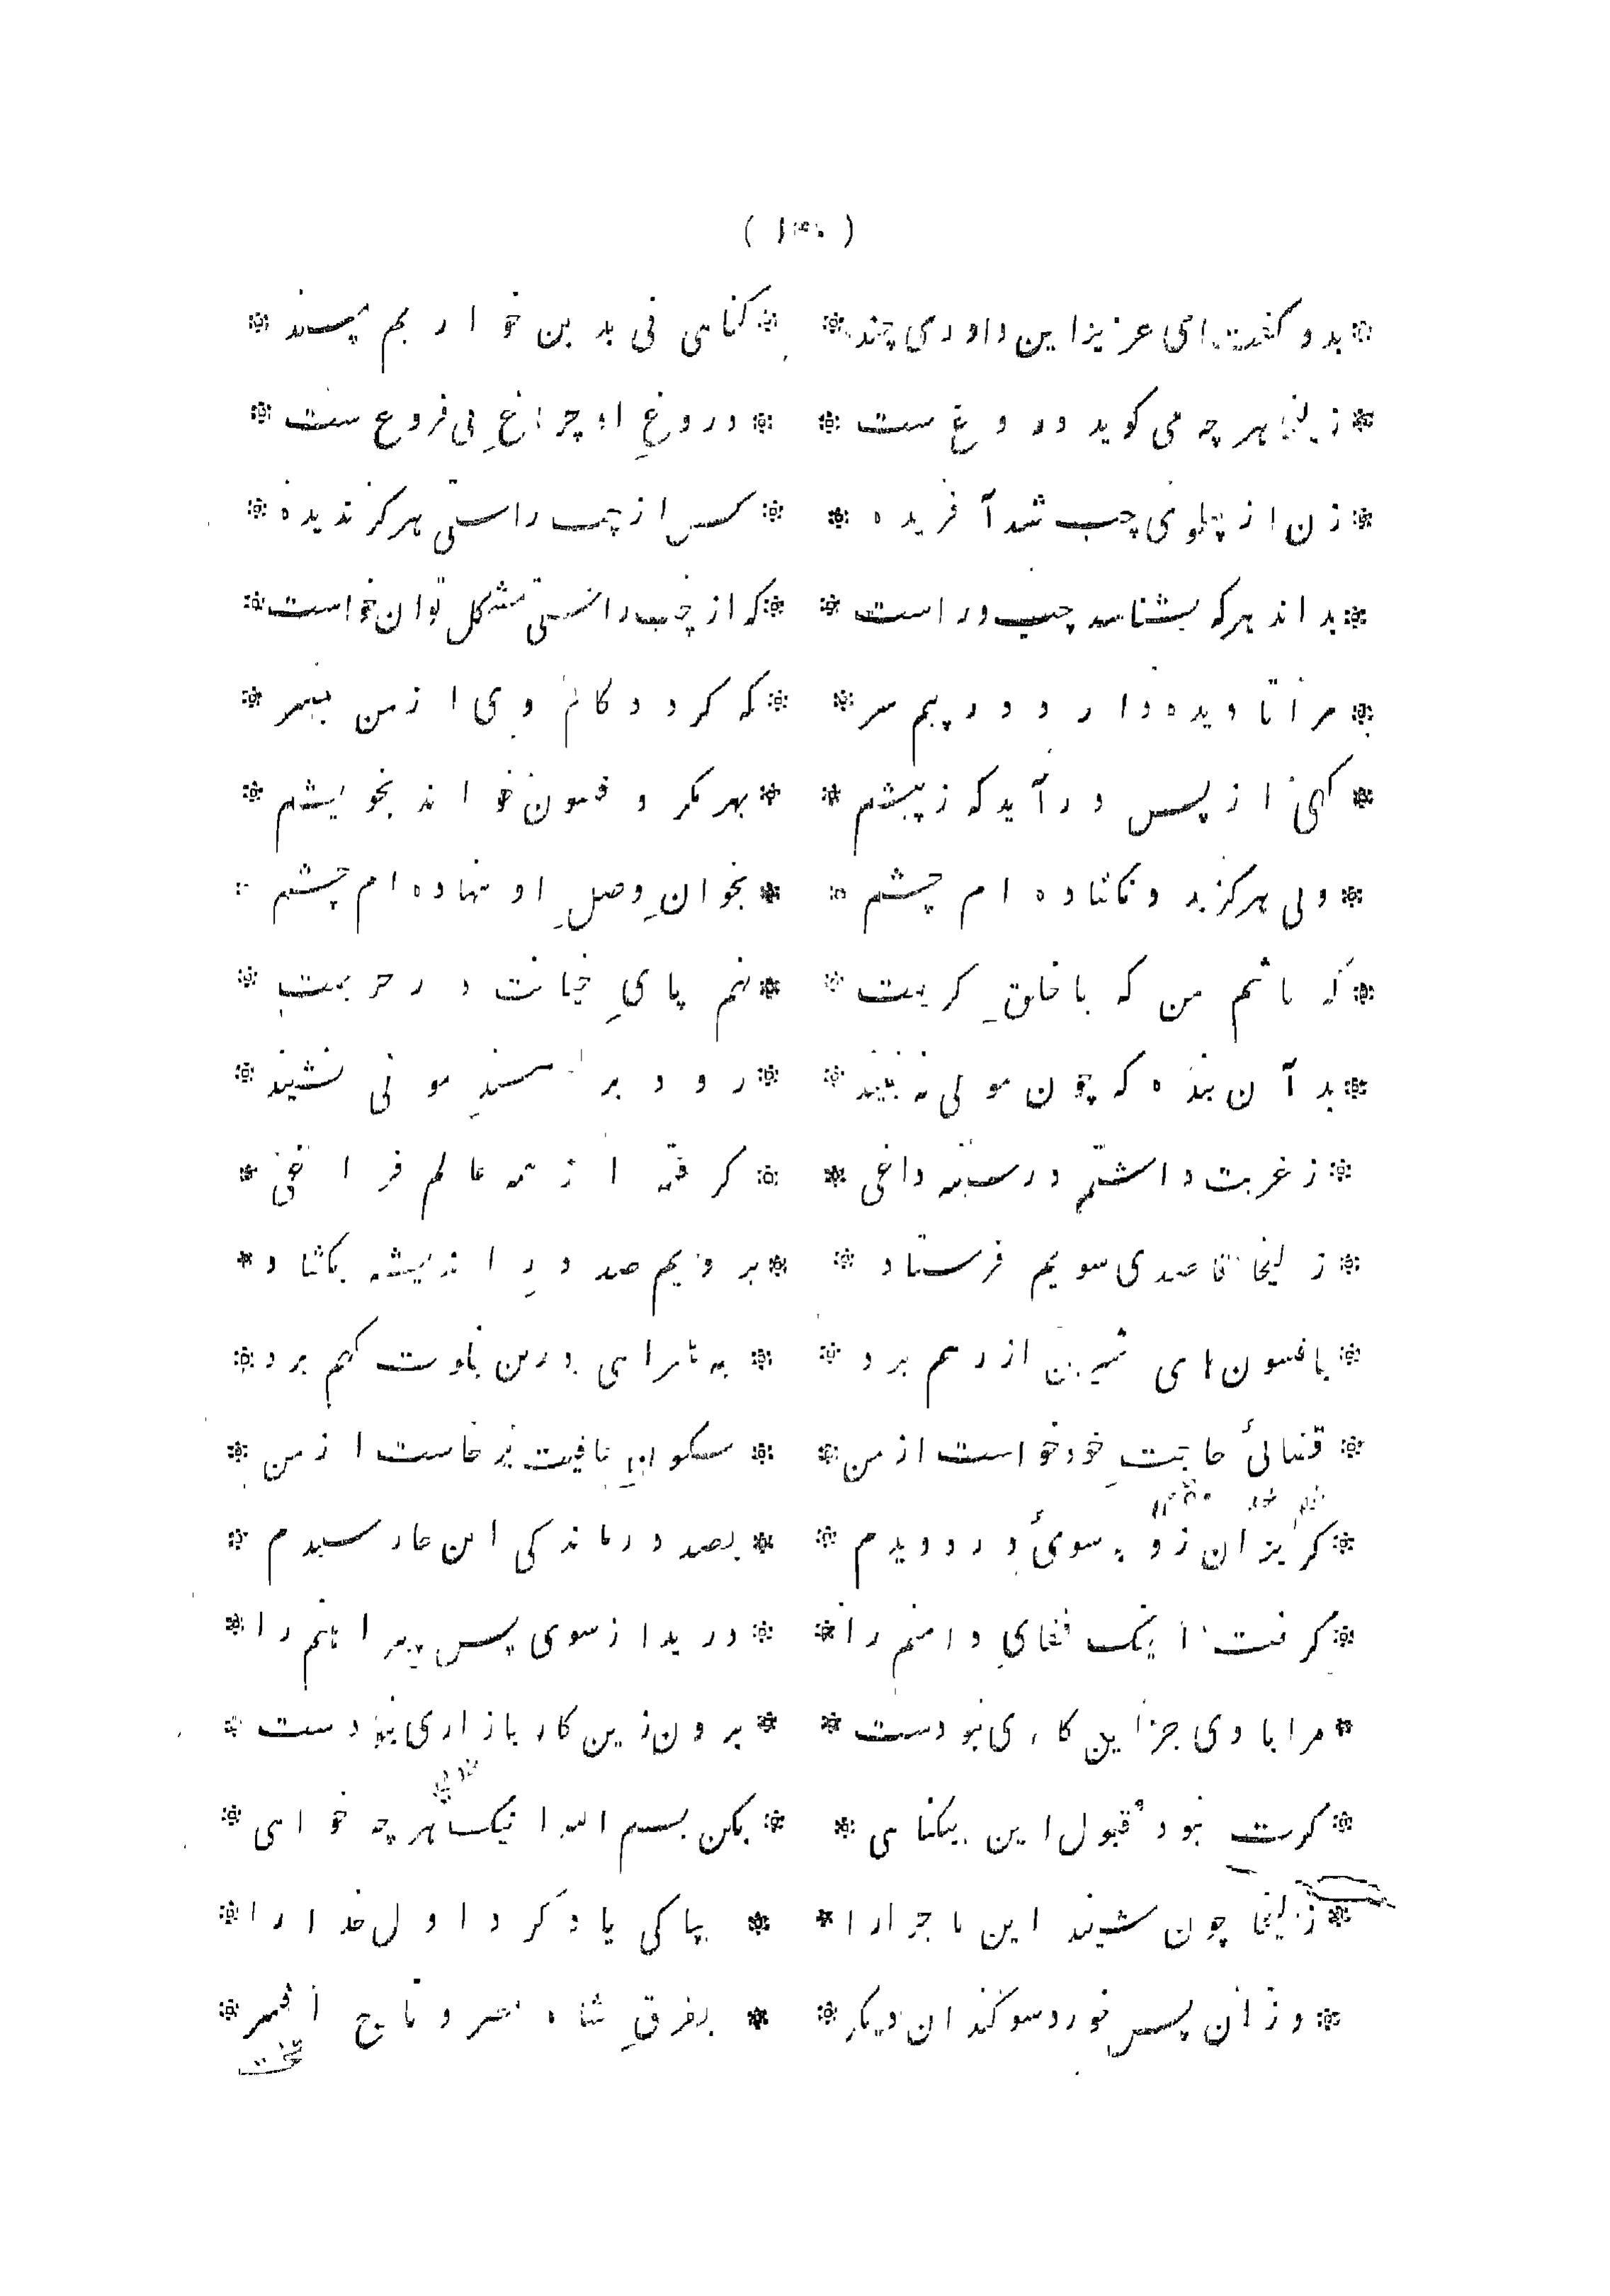 بدو کفت ای عزیز این داوری چند * کناهی نی بدین خواریم مپسند
زلیخا هر چه می کوید دروغ ست * دروغِ او چراغِ بی فروغ ست
زن از پهلوی چپ شد آفریده * کس از چپ راستی هرکز ندیده
بداند هرکه بشناسد چپ و راست * که از چپ راستی مشکل توان خواست
مرا تا دیده دارد در پیم سر * که کردد کام وی از من میسر
کهی از پس در آید که ز پیشم * بهر مکر و فسون خواند بخویشم
ولی هرکز بدو نکشاده ام چشم * بخوانِ وصلِ او ننهاده ام چشم
که باشم من که با خلقِ کریمت * نهم پایِ خیانت در حریمت
بد آن بنده که چون مولی نه بیند * رود بر مسندِ مولی نشیند
ز غربت داشتم در سینه داغی * کرفته از همه عالم فراغی
زلیخا قاصدی سویم فرستاد * برویم صد درِ اندیشه بکشاد
بافسون های شیرین از رهم برد * به همراهی درین خلوت کهم برد
قضائی حاجتِ خود خواست از من * سکونِ عافیت برخاست از من
کریزان زو به سوئ در دویدم * بصد درماندکی این جا رسیدم
کرفت اینک قفایِ دامنم را * درید از سوی پس پیراهنم را
مرا با وی جز این کاری نبودست * برون زین کار بازاری نبودست
کرت نبود قبول این بیکناهی * بکن بسم الله اینک هر چه خواهی
زلیخا چون شنید این ماجرا را * بپاکی یاد کرد اول خدا را
وزان پس خورد سوکندان دیکر * بفرقِ شاه مصر و تاج افسر
تخت